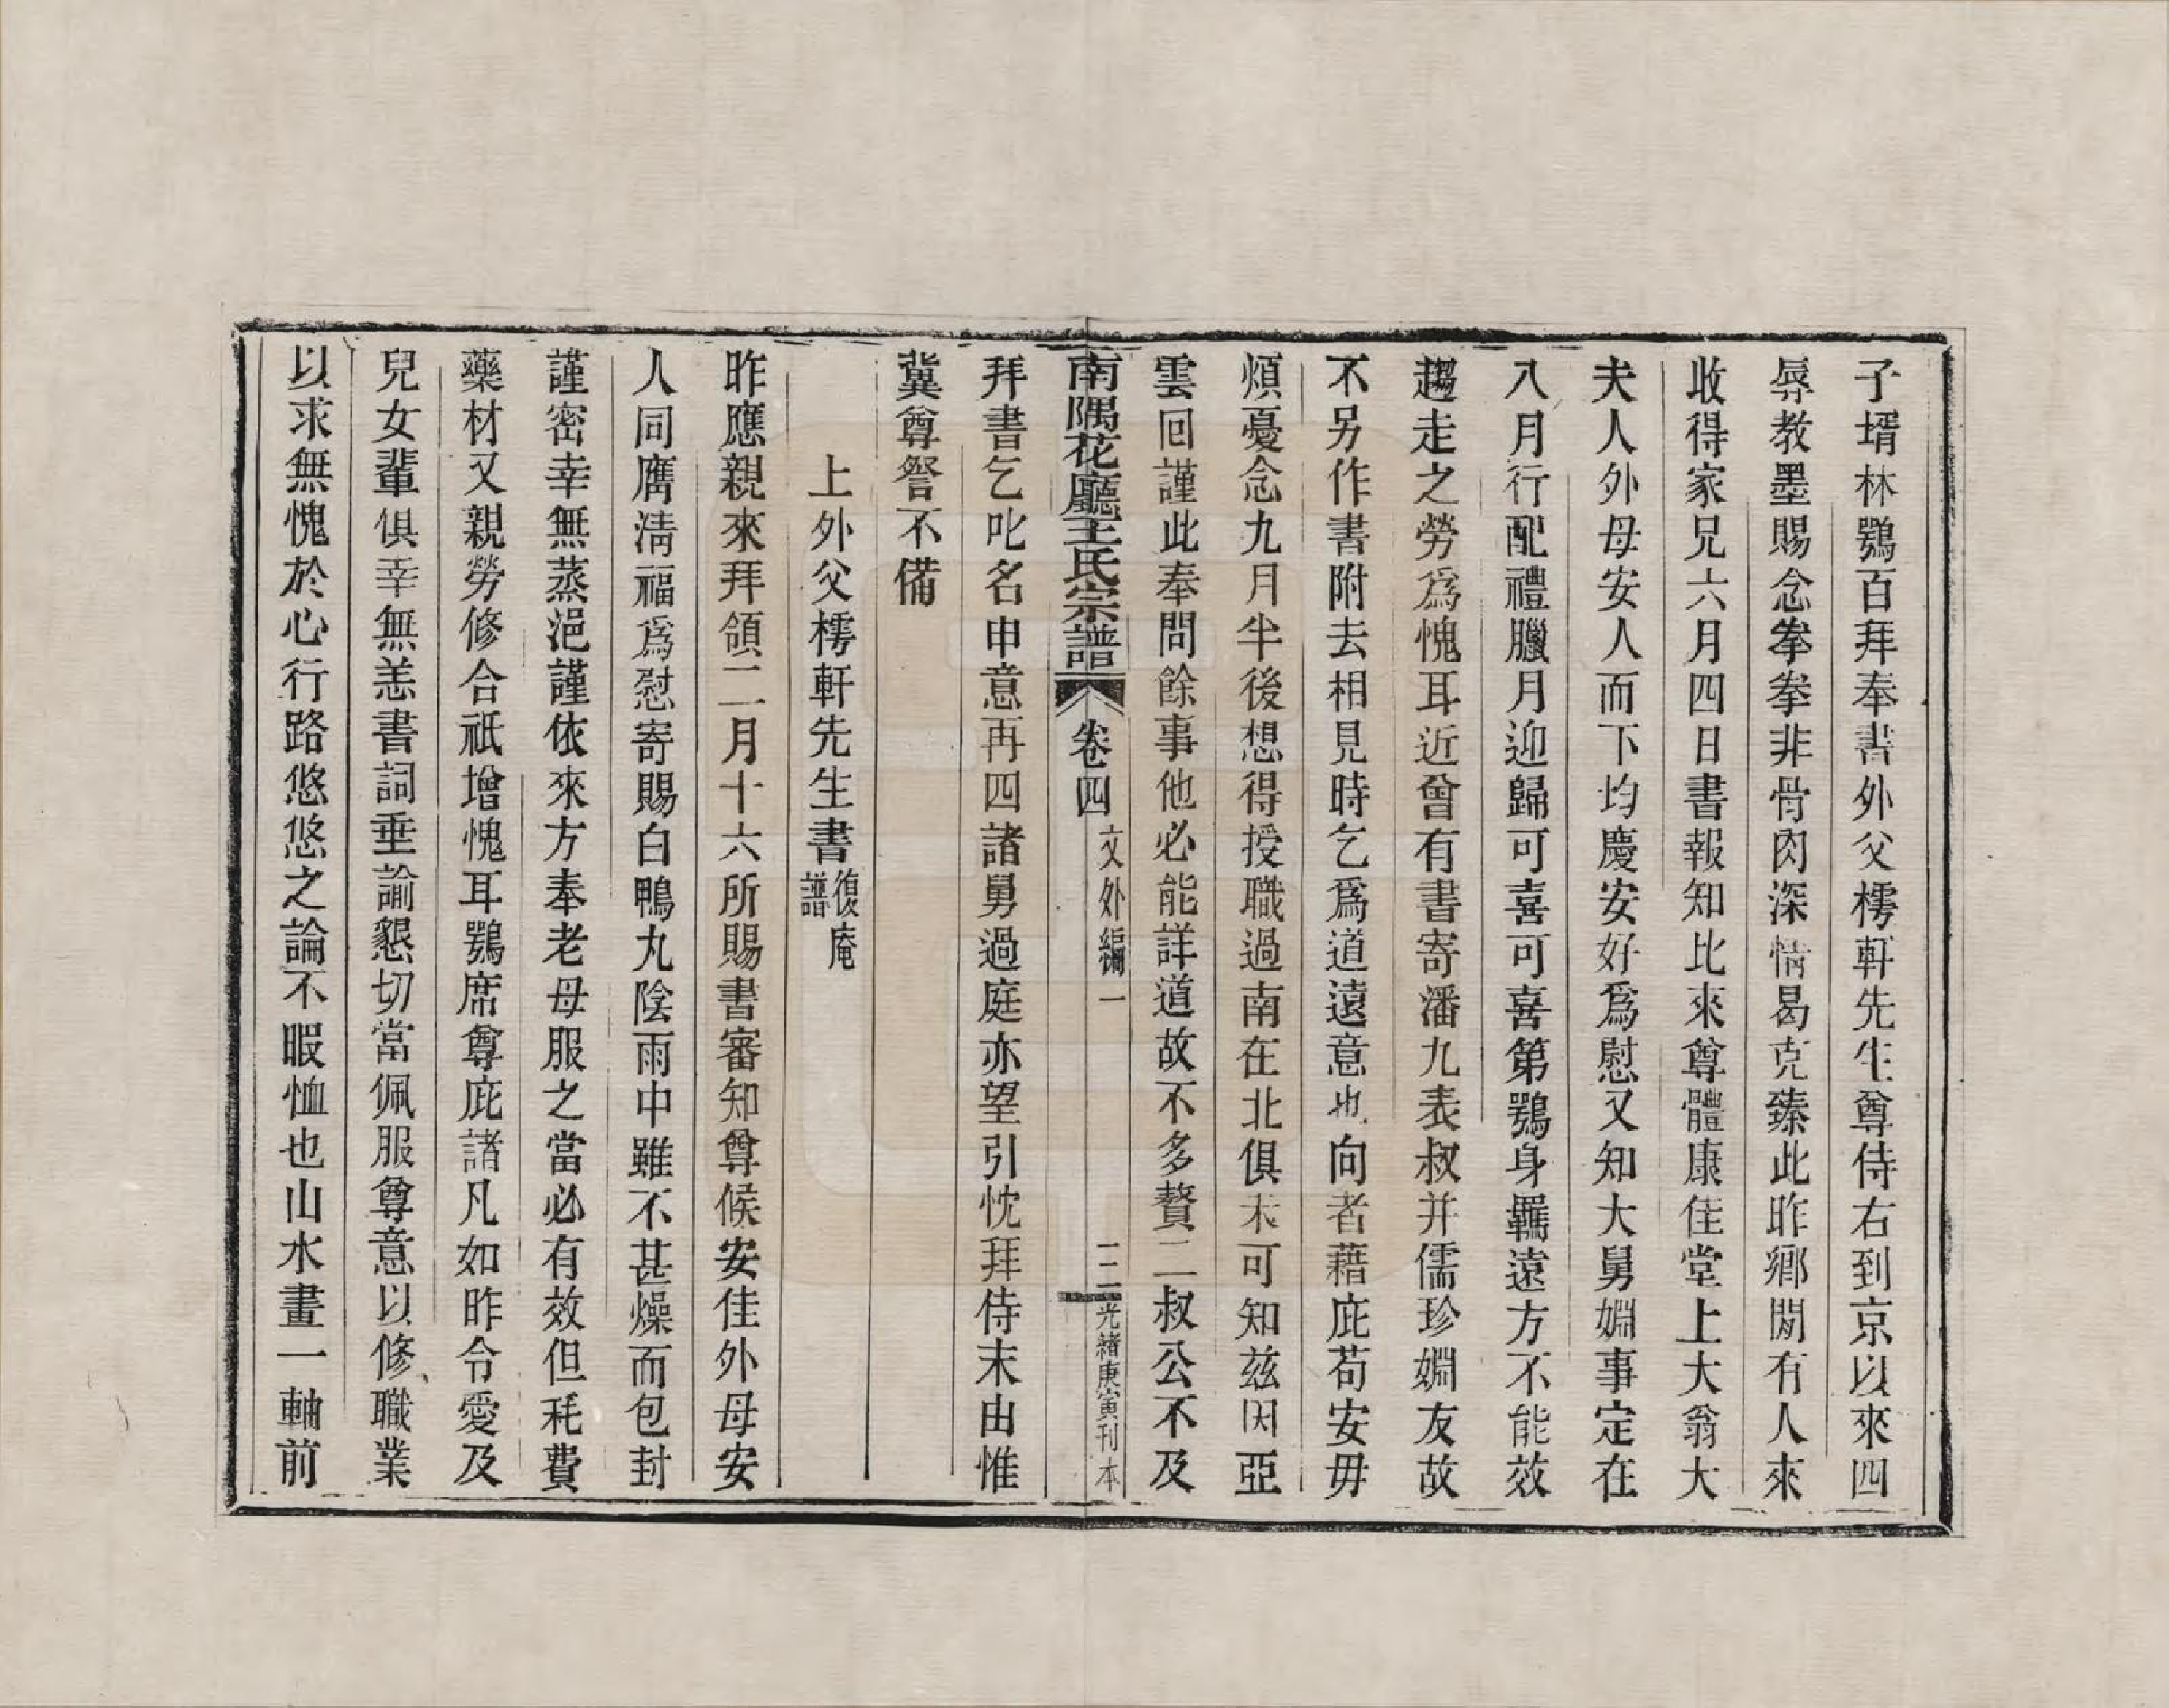 子壻林鶚百拜奉書外父樗軒先生尊侍右到京以來四
辱教墨賜念拳拳非骨肉深情曷克臻此昨鄉閒有人來
收得家兄六月四日書報知比來尊體康佳堂上大翁大
夫人外母安人而下均慶安好爲慰又知大舅婣事定在
八月行配禮臘月迎歸可喜可喜第鶚身羈遠方不能效
趨走之勞爲愧耳近曾有書寄潘九表叔并儒珍婣友故
不另作書附去相見時乞爲道遠意也向者藉庇苟安毋
煩憂念九月半後想得授職過南在北俱未可知茲因亞
雲回謹此奉問餘事他必能詳道故不多贅二叔公不及
南隅花廳王氏宗譜 卷四 文外編一 三二 光緒庚寅刊本
拜書乞叱名申意再四諸舅過庭亦望引忱拜侍末由惟
冀尊詧不備
上外父樗軒先生書 復庵譜
昨應親來拜領二月十六所賜書審知尊候安佳外母安
人同膺淸福爲慰寄賜白鴨丸陰雨中雖不甚燥而包封
謹密幸無蒸浥謹依來方奉老母服之當必有效但秏費
藥材又親勞修合祇增愧耳鶚席尊庇諸凡如昨令愛及
兒女輩俱幸無恙書詞垂諭懇切當佩服尊意以修職業
以求無愧於心行路悠悠之論不暇恤也山水畫一軸前